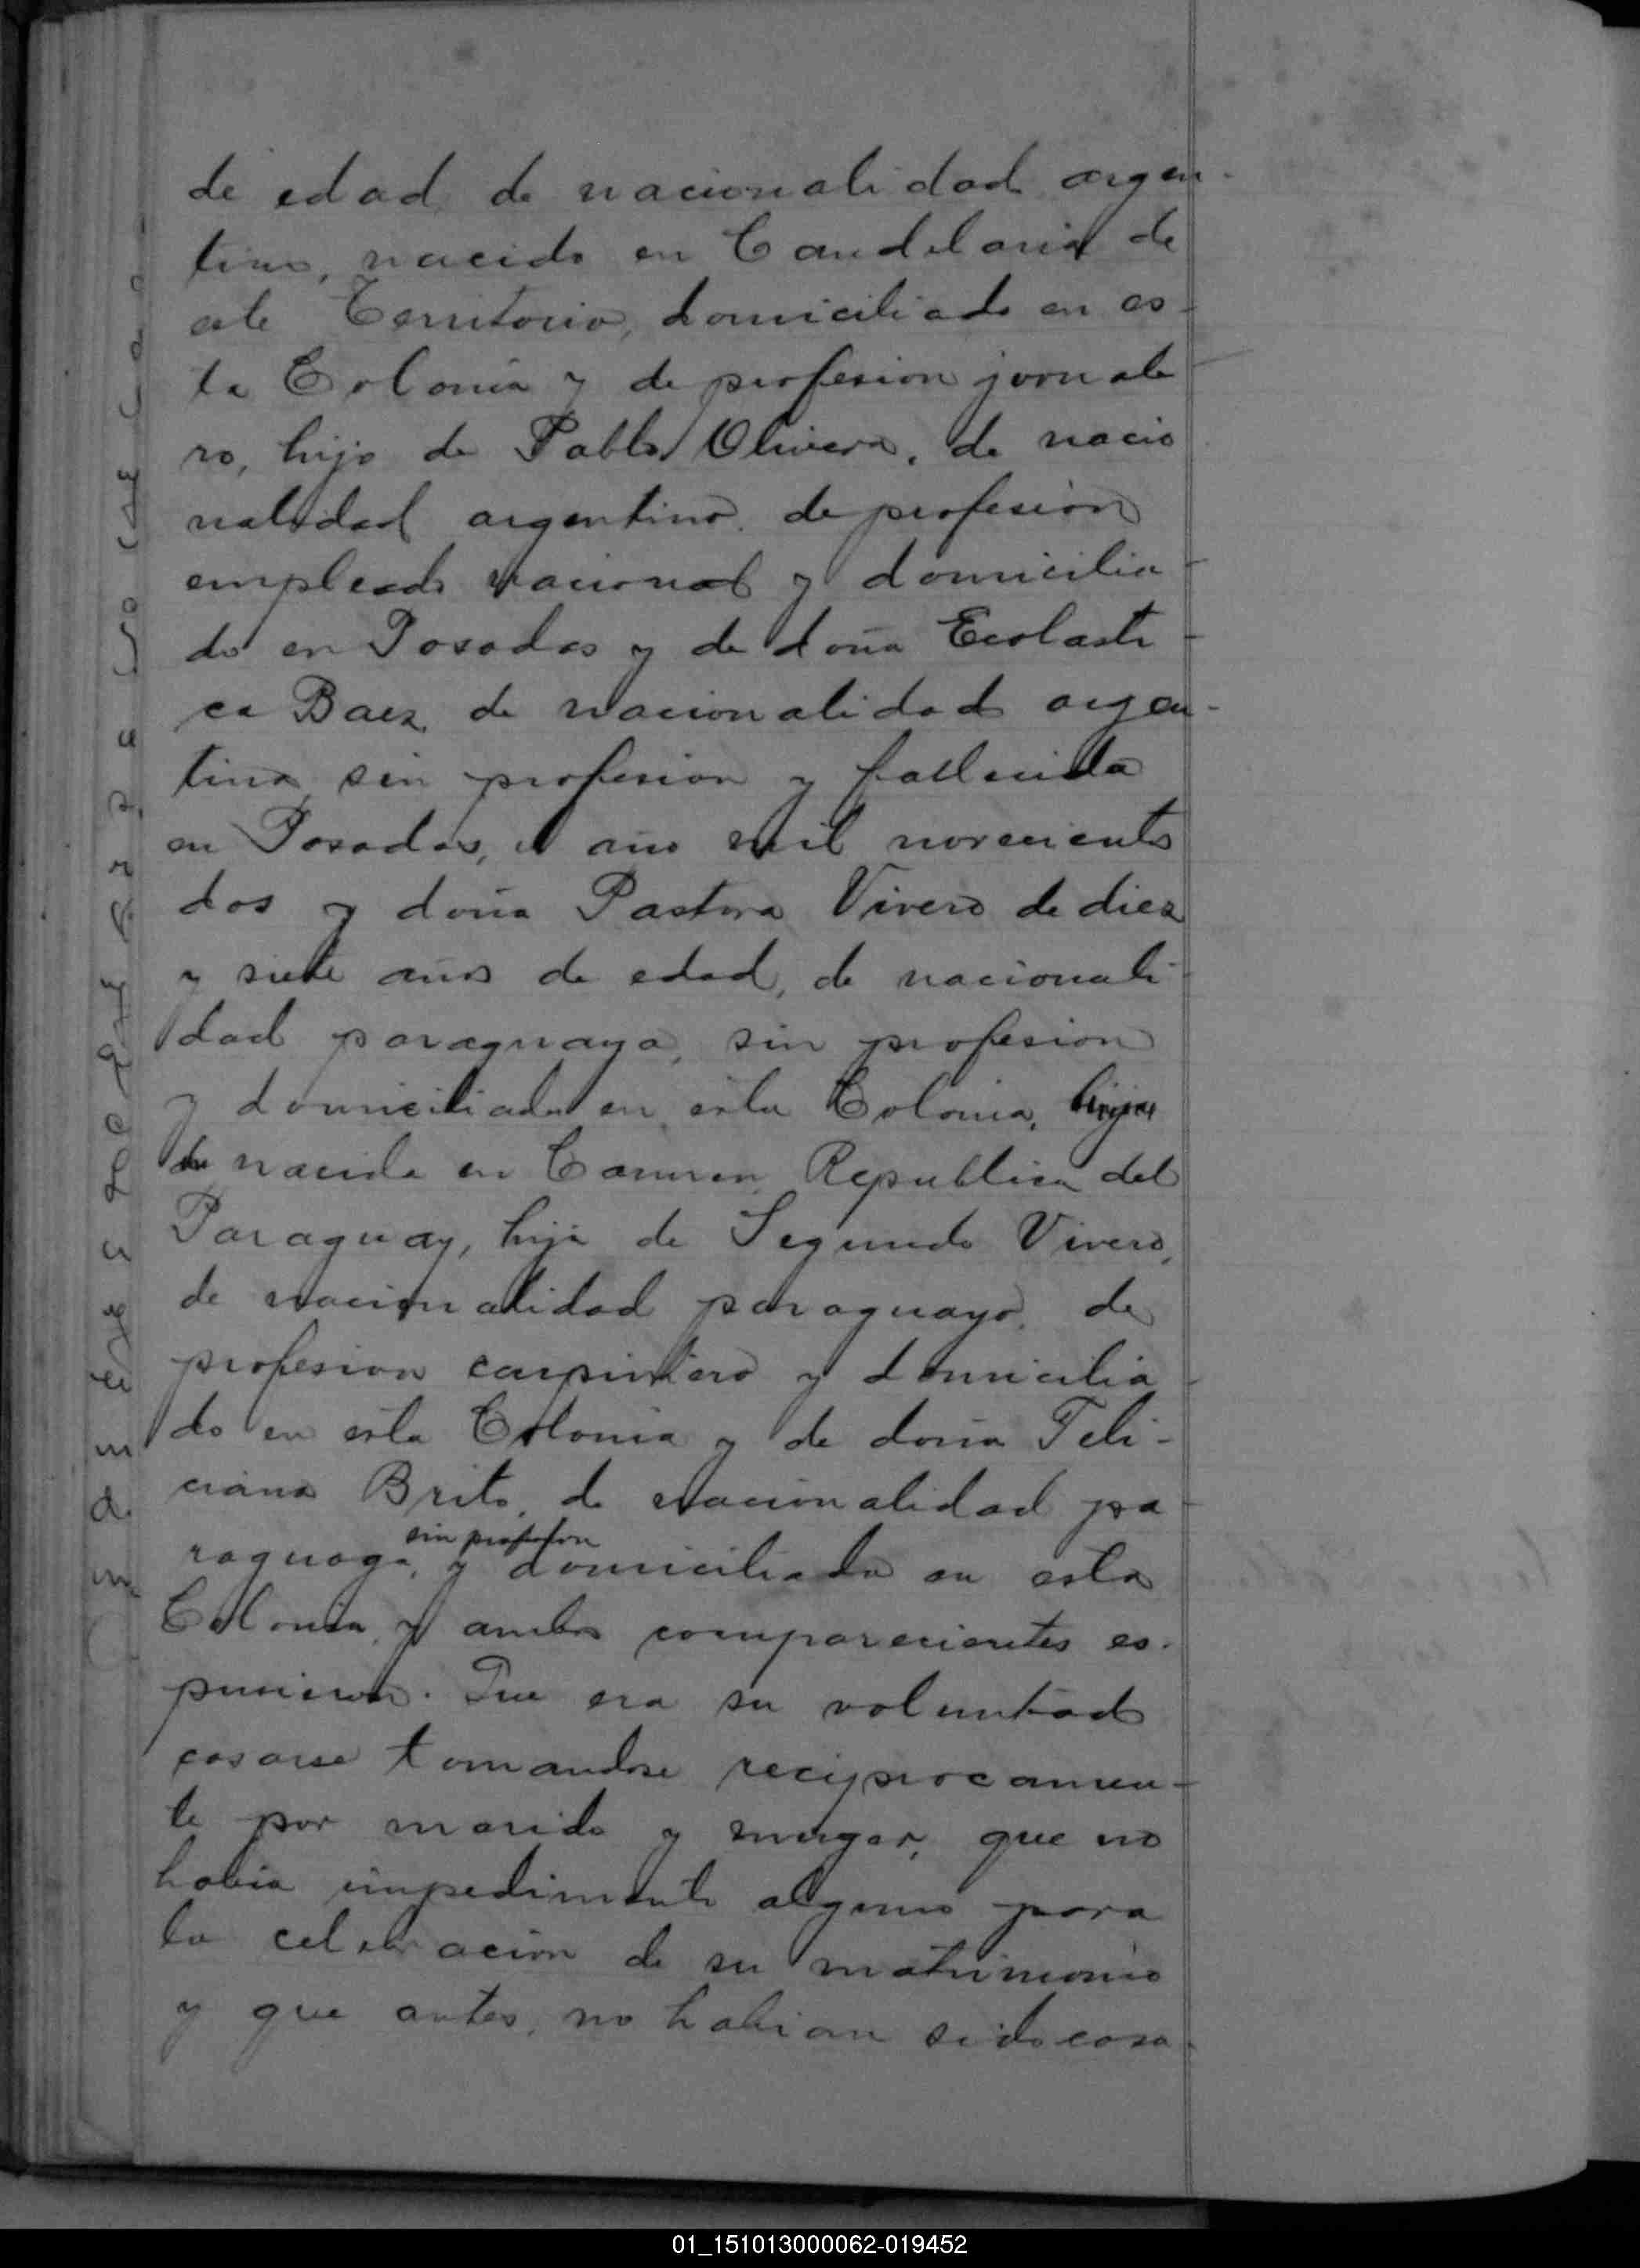 de edad de nacionalidad argen-
tino, nacido en Candelaria de
este Territorio, domiciliado en es-
ta Colonia y de profesion jornale
ro, hijo de Pablo Olivera, de nacio
nalidad argentino, de profesion
empleado nacional y domicilia-
do en Posadas y de doña Ecolasti-
ca Baez de nacionalidad argen-
tina sin profesion y fallecida
en Posadas, el año mil novecientos
dos y doña Pastora Vivero de diez
y siete años de edad, de nacionali-
dad paraguaya, sin profesion
y domiciliada en esta Colonia, hija
de nacida en Carmen Republica del
Paraguay, hija de Segundo Vivero,
de nacionalidad paraguayo, de
profesion carpintero y domicilia-
do en esta Colonia y de doña Feli-
ciana Brito, de nacionalidad pa-
sin profesion
raguaya, y domiciliada en esta
Colonia, y ambos comparecientes es-
pusieron. Que era su voluntad
casarse tomandose reciprocamen-
te por marido y muger, que no
habia impedimento alguno para
la celebracion de su matrimonio
y que antes, no habian sido casa-
01_151013000062-019452